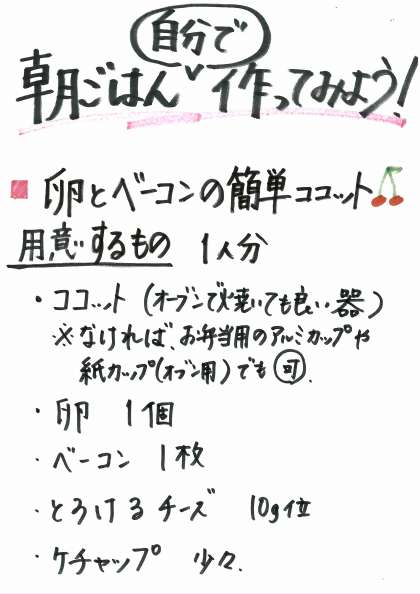 自分で
朝ごはん 作ってみよう!
卵とベーコンの簡単ココット
用意するもの 1人分
・ココット(オーブンで焼いても良い器)
※なければ、お弁当用のアルミカップや
紙カップ(オーブン用)でも可.
・卵 1個
・ベーコン 1枚
・とろけるチーズ 10g位
・ケチャップ 少々.